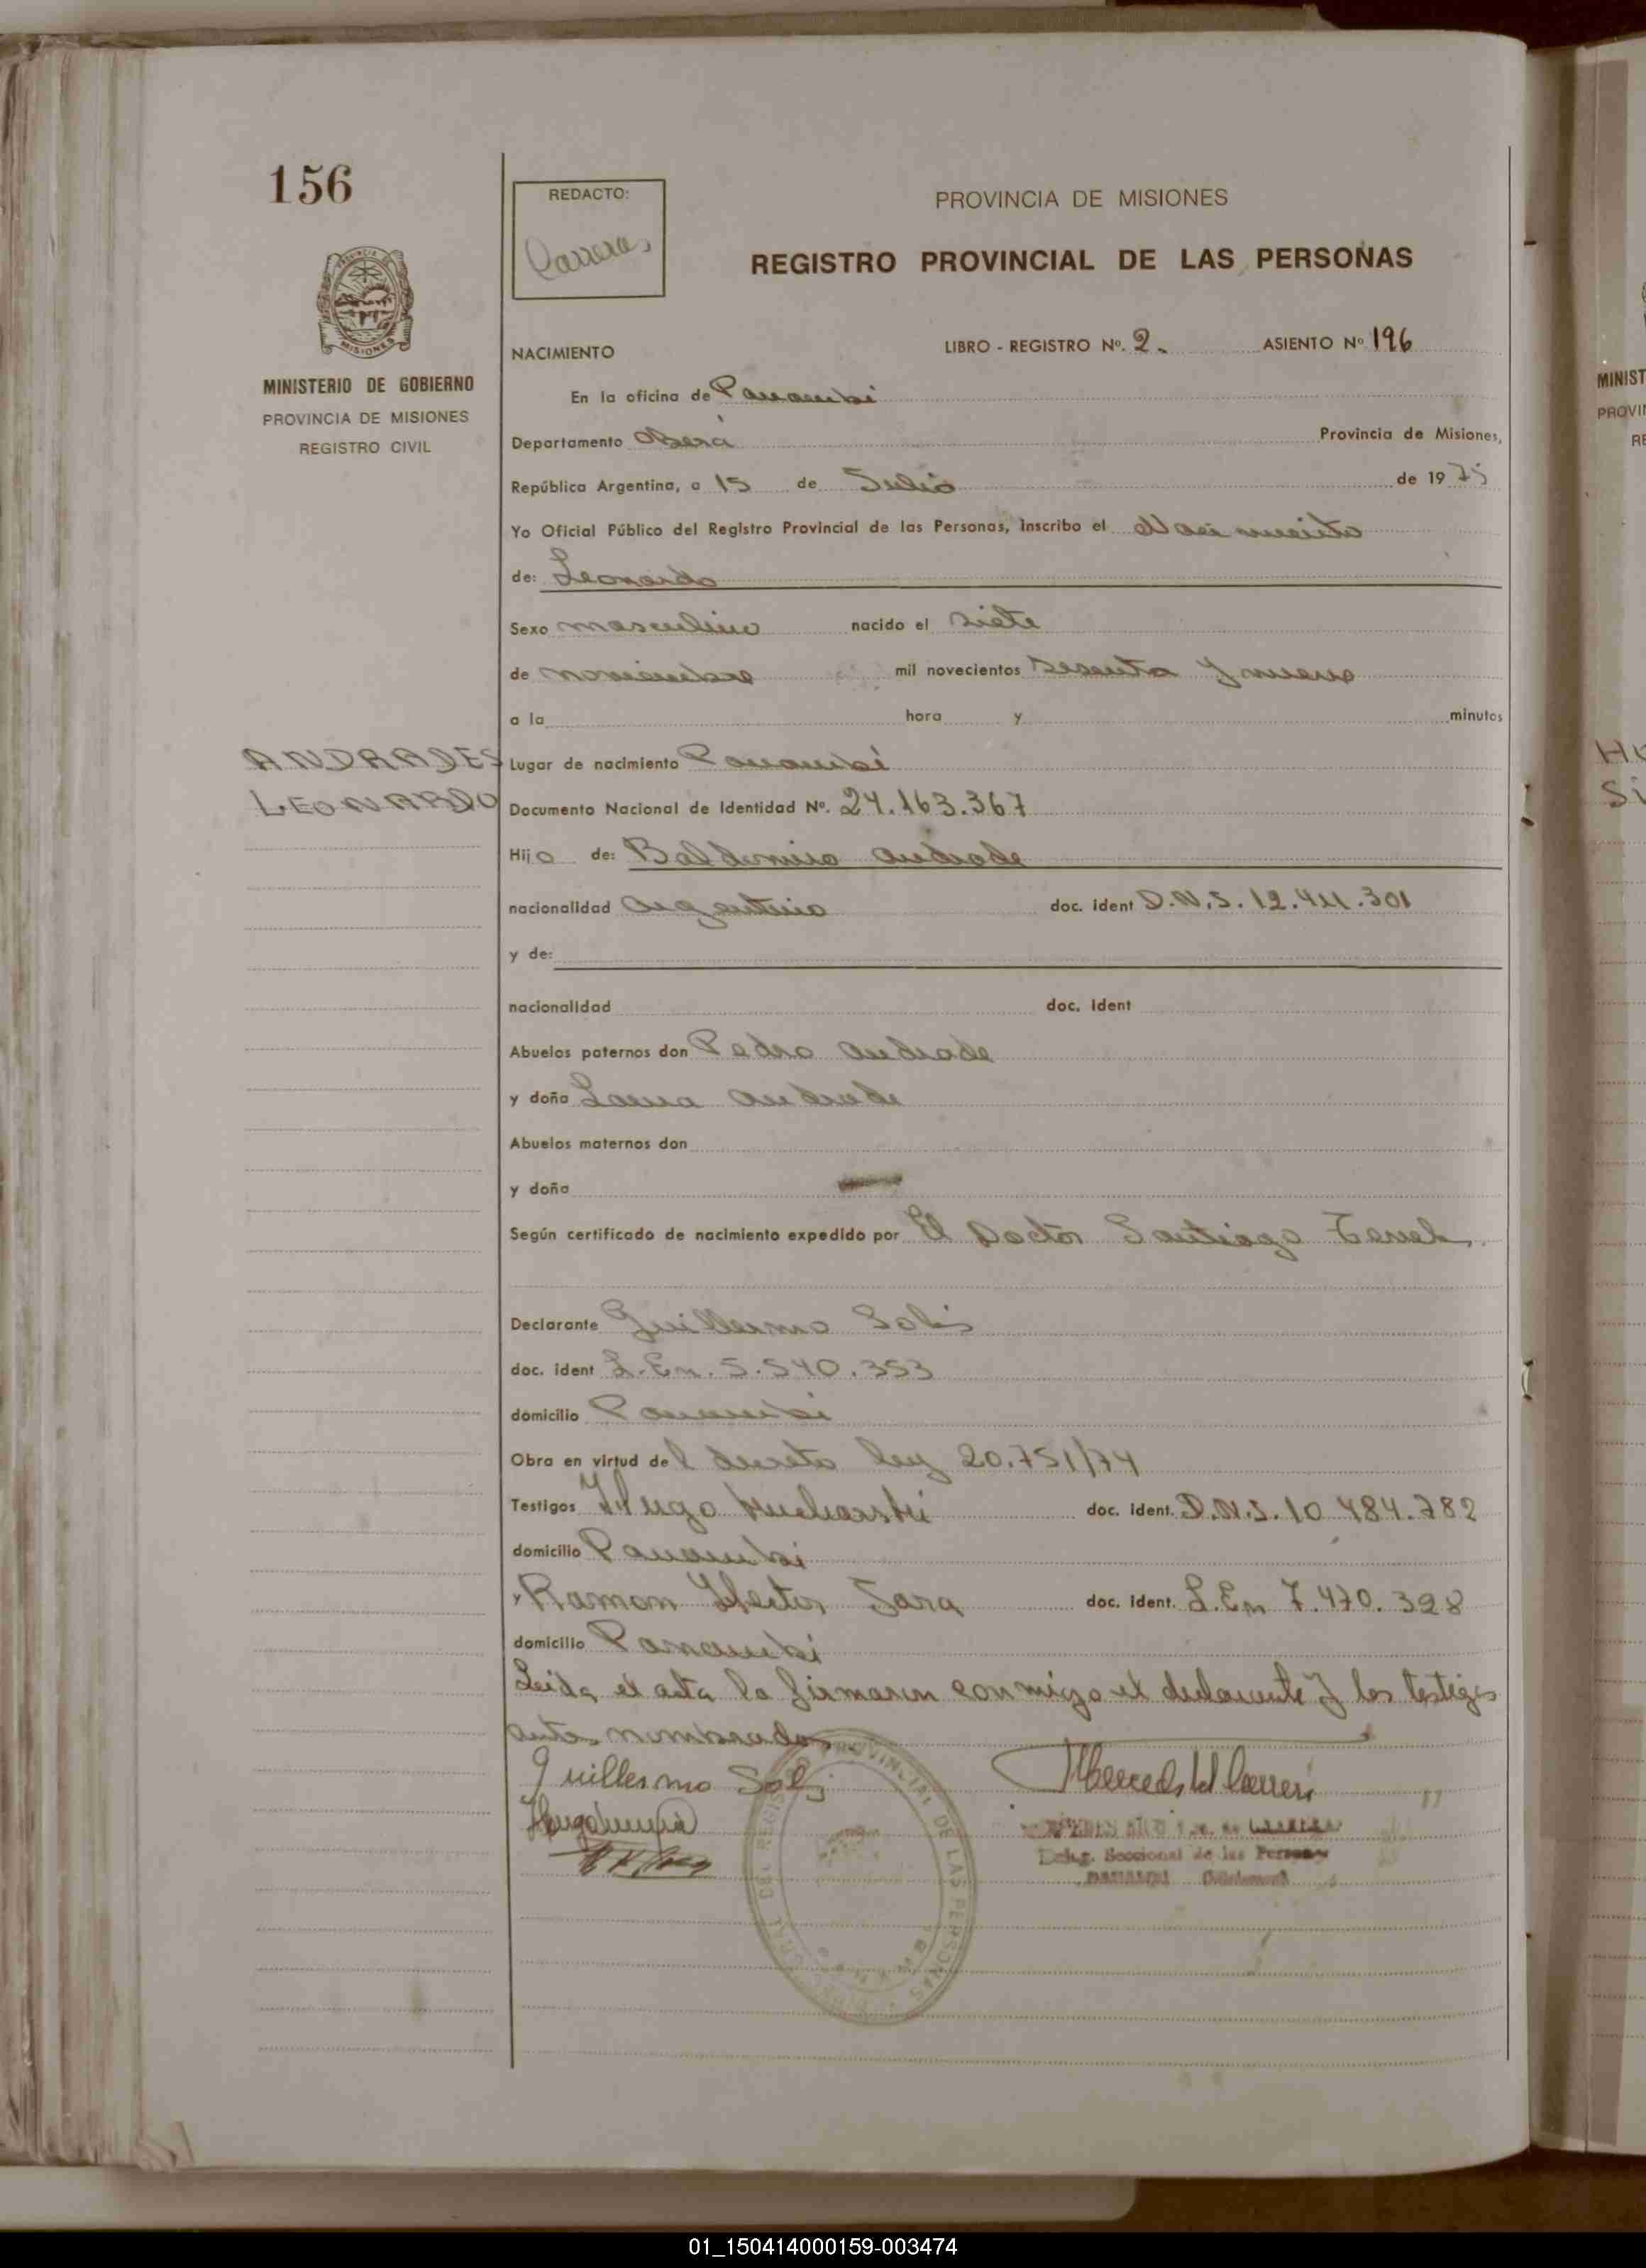 156
REDACTO:
Carreras
PROVINCIA DE MISIONES
REGISTRO PROVINCIAL DE LAS PERSONAS
MISIONES
MINISTERIO DE GOBIERNO
PROVINCIA DE MISIONES
REGISTRO CIVIL
NACIMIENTO LIBRO - REGISTRO Nº. 2. ASIENTO Nº 196
En la oficina de Panambi
Departamento Oberá Provincia de Misiones,
República Argentina, a 15 de Julio de 1975
Yo Oficial Público del Registro Provincial de las Personas, inscribo el Nacimiento
de: Leonardo
Sexo masculino nacido el siete
de noviembre mil novecientos sesenta y nueve
a la hora y minutos
ANDRADES
LEONARDO
Lugar de nacimiento Panambi
Documento Nacional de Identidad Nº. 24.163.367
Hijo de: Baldomiro Andrade
nacionalidad Argentino doc. ident D.N.I. 12.411.301
y de:
nacionalidad doc. ident
Abuelos paternos don Pedro Andrade
y doña Andrade
Abuelos maternos don
y doña
Según certificado de nacimiento expedido por El Doctor Santiago
Declarante Guillermo Solis
doc. ident L.En. 5.540.353
domicilio Panambi
Obra en virtud del decreto ley 20.751/74
Testigos Hugo doc. ident. D.N.I. 10 484.782
domicilio Panambi
y Ramon Hector Jara doc. ident. L.En 7.470.328
domicilio Panambi
Leida el acta la firmaron conmigo el declarante y los testigos
antes nombrados
Guillermo Solis
Deleg. Seccional de las Personas
PANAMBI
REGISTRO PROVINCIAL DE LAS PERSONAS
MINIST
PROVI
RE
HU
SI
01_150414000159-003474